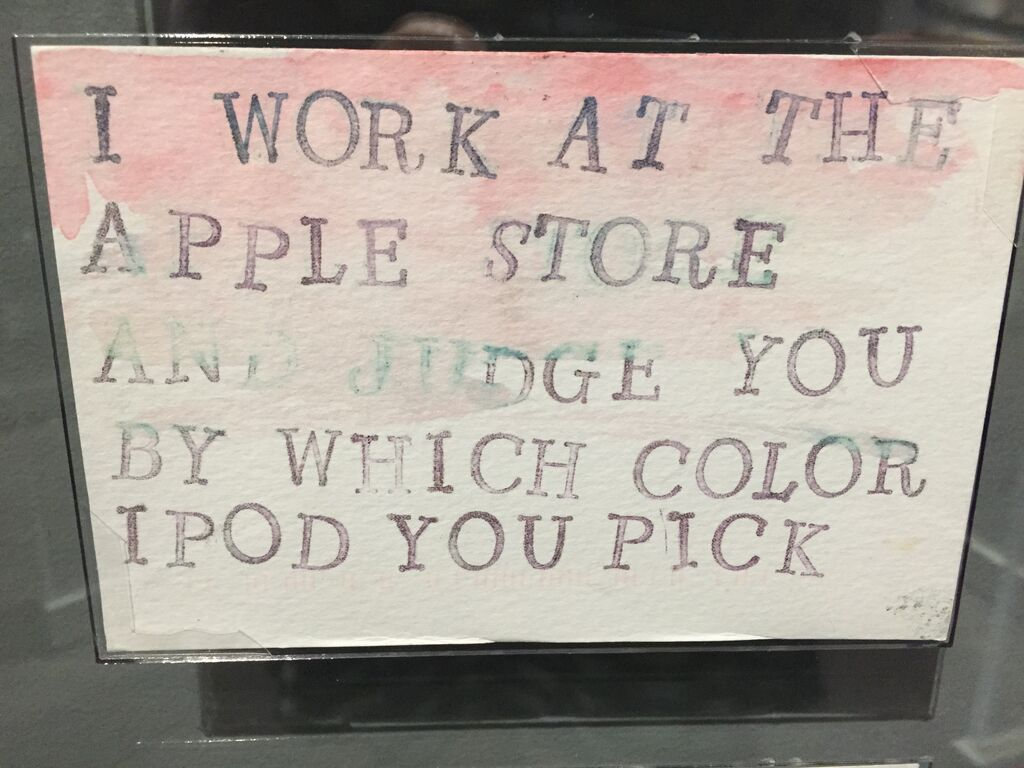 I WORK AT THE
APPLE STORE
AND JUDGE YOU
BY WHICH COLOR
IPOD YOU PICK